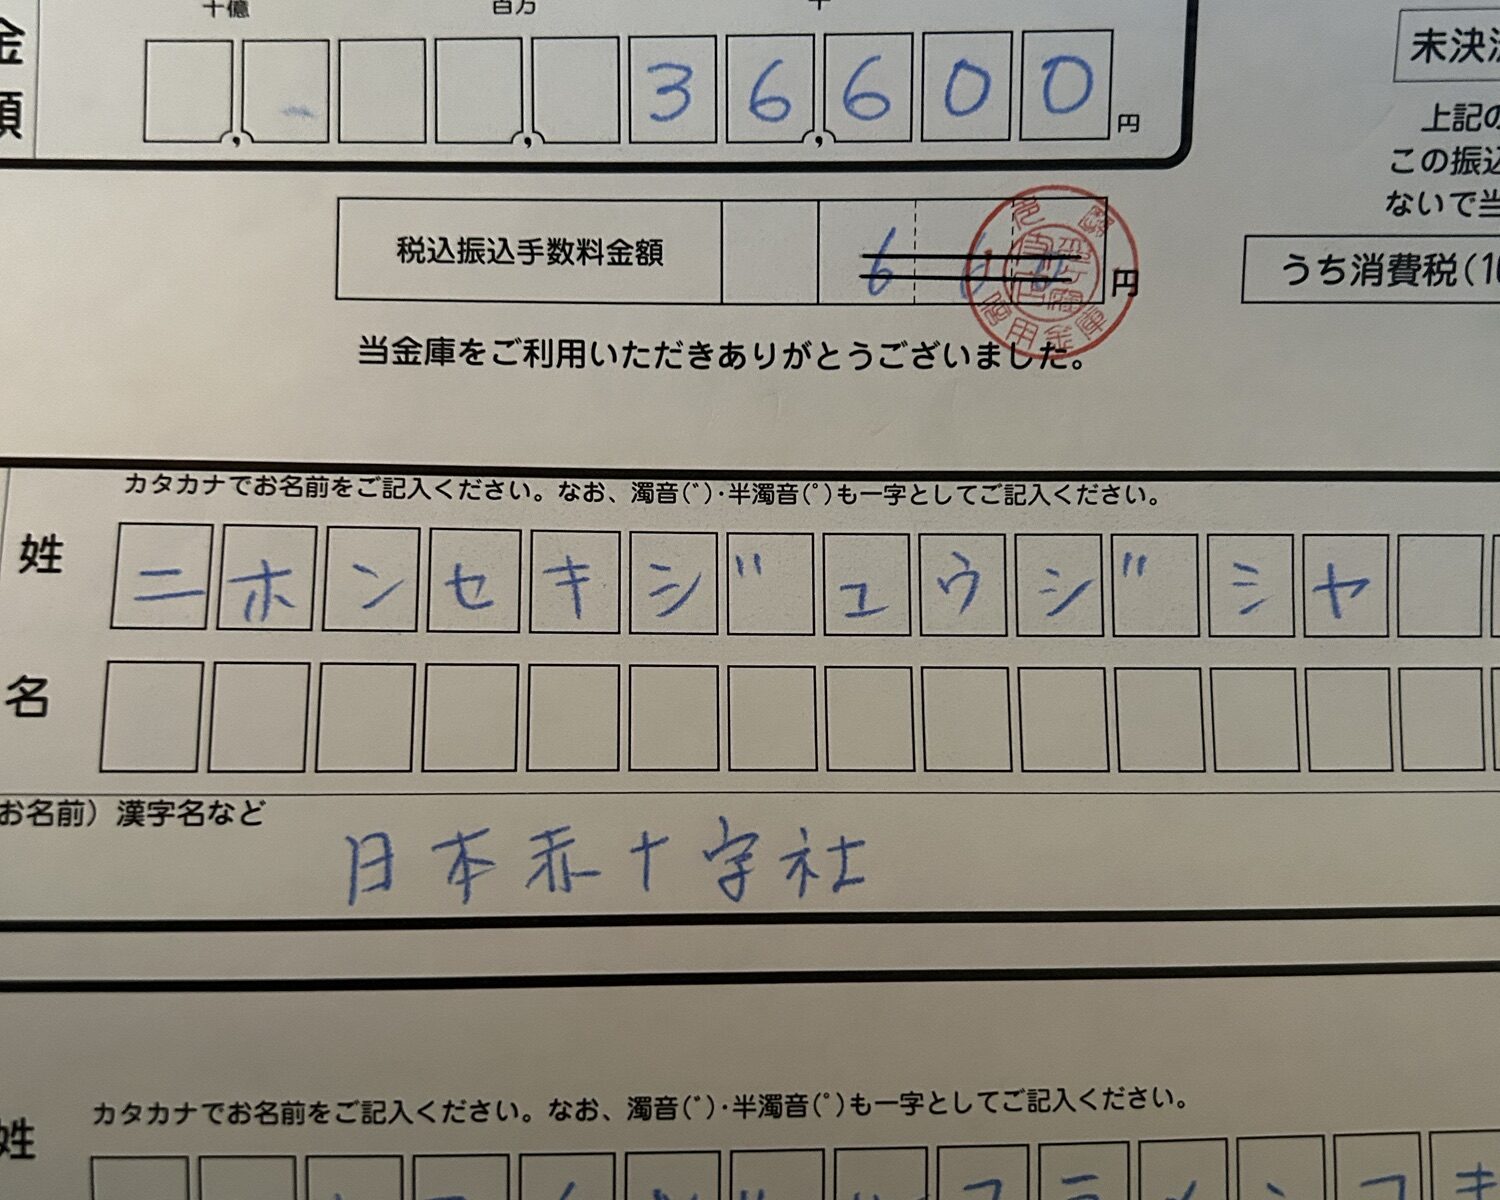 十億 百万 千
金額 36,600円
未決済
上記の
この振込
ないで当
税込振込手数料金額 円
うち消費税(10
当金庫をご利用いただきありがとうございました。
カタカナでお名前をご記入ください。なお、濁音(゛)・半濁音(゜)も一字としてご記入ください。
姓 ニホンセキシ゛ユウシ゛シヤ
名
お名前)漢字名など
日本赤十字社
カタカナでお名前をご記入ください。なお、濁音(゛)・半濁音(゜)も一字としてご記入ください。
姓